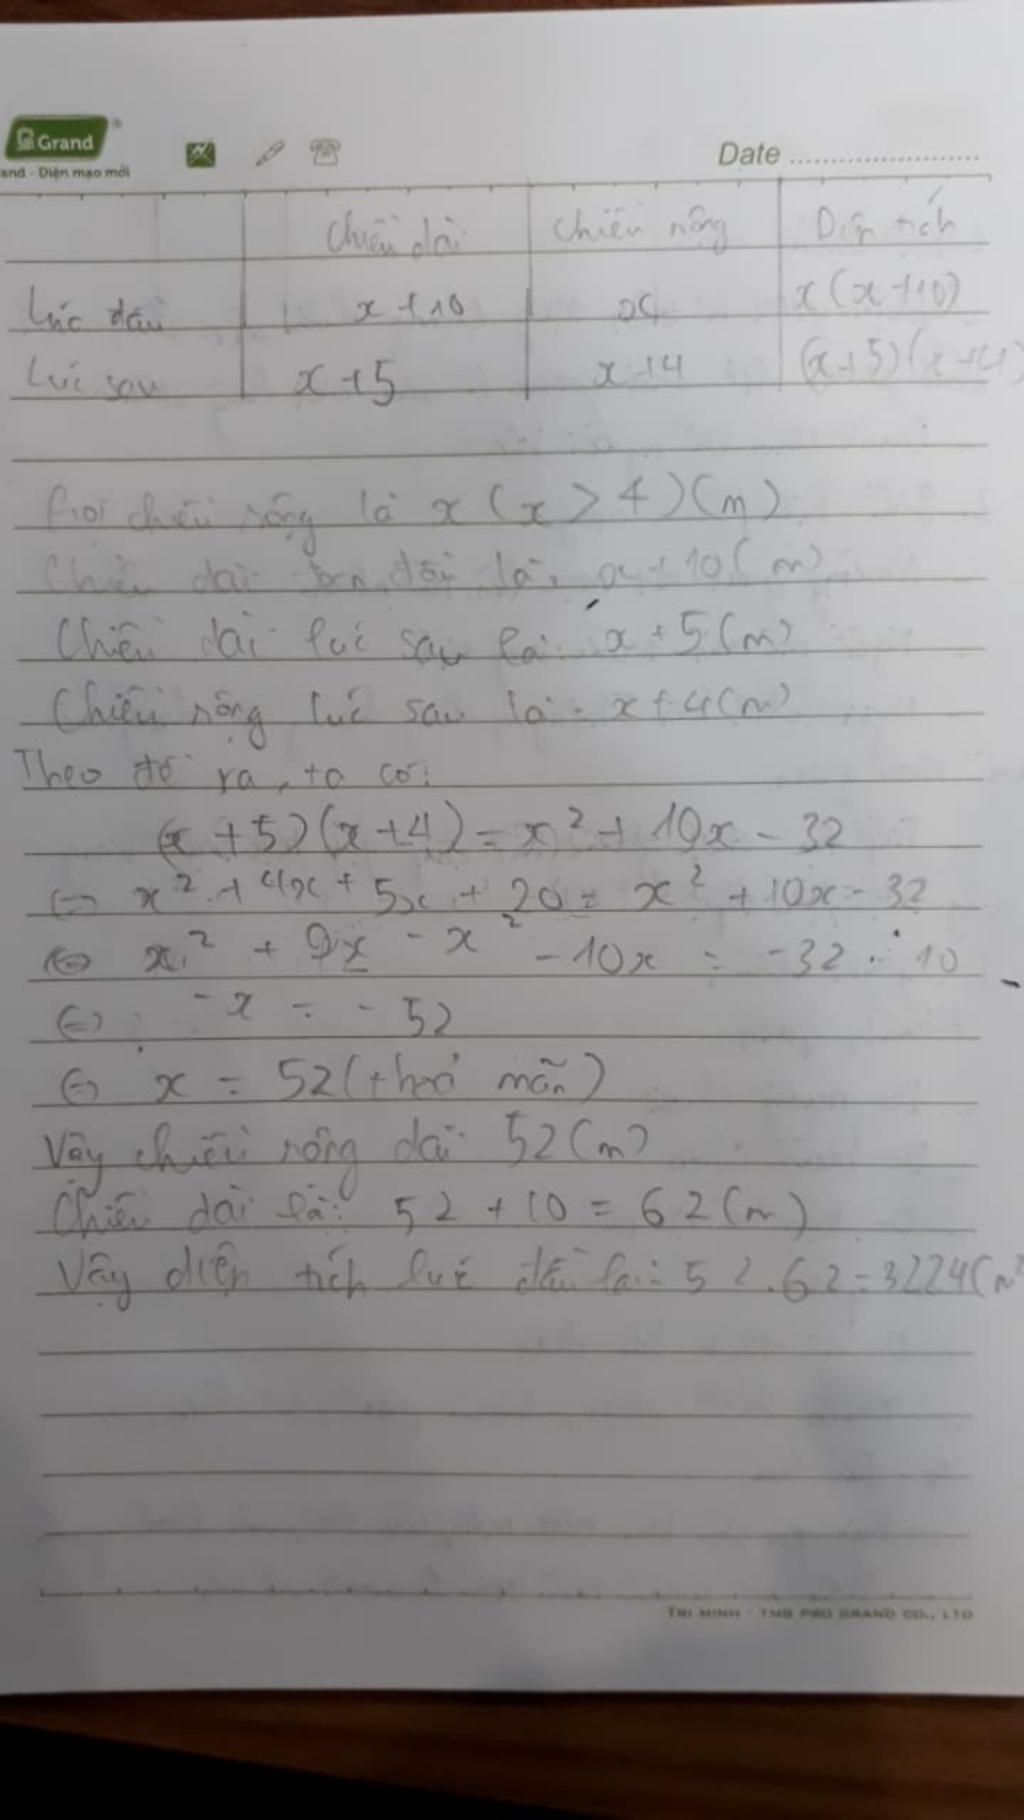 Grand
and - Diện mạo mới
Date
Chiều dài Chiều rộng Diện tích
Lúc đầu x + 10 x x(x+10)
Lúc sau x+5 x+4 (x+5)(x+4)
Gọi chiều rộng là x (x > 4)(m)
Chiều dài ban đầu là, x + 10(m)
Chiều dài lúc sau là: x + 5(m)
Chiều rộng lúc sau là: x + 4(m)
Theo đề ra, ta có:
(x + 5)(x + 4) = x² + 10x - 32
⇔ x² + 4x + 5x + 20 = x² + 10x - 32
⇔ x² + 9x - x² - 10x = -32 - 10
⇔ -x = - 52
⇔ x = 52 (thoả mãn)
Vậy chiều rộng dài 52(m)
Chiều dài là: 52 + 10 = 62(m)
Vậy diện tích lúc đầu là: 52.62 = 3224(m²
TRI MINH - TMG PRO GRAND CO., LTD